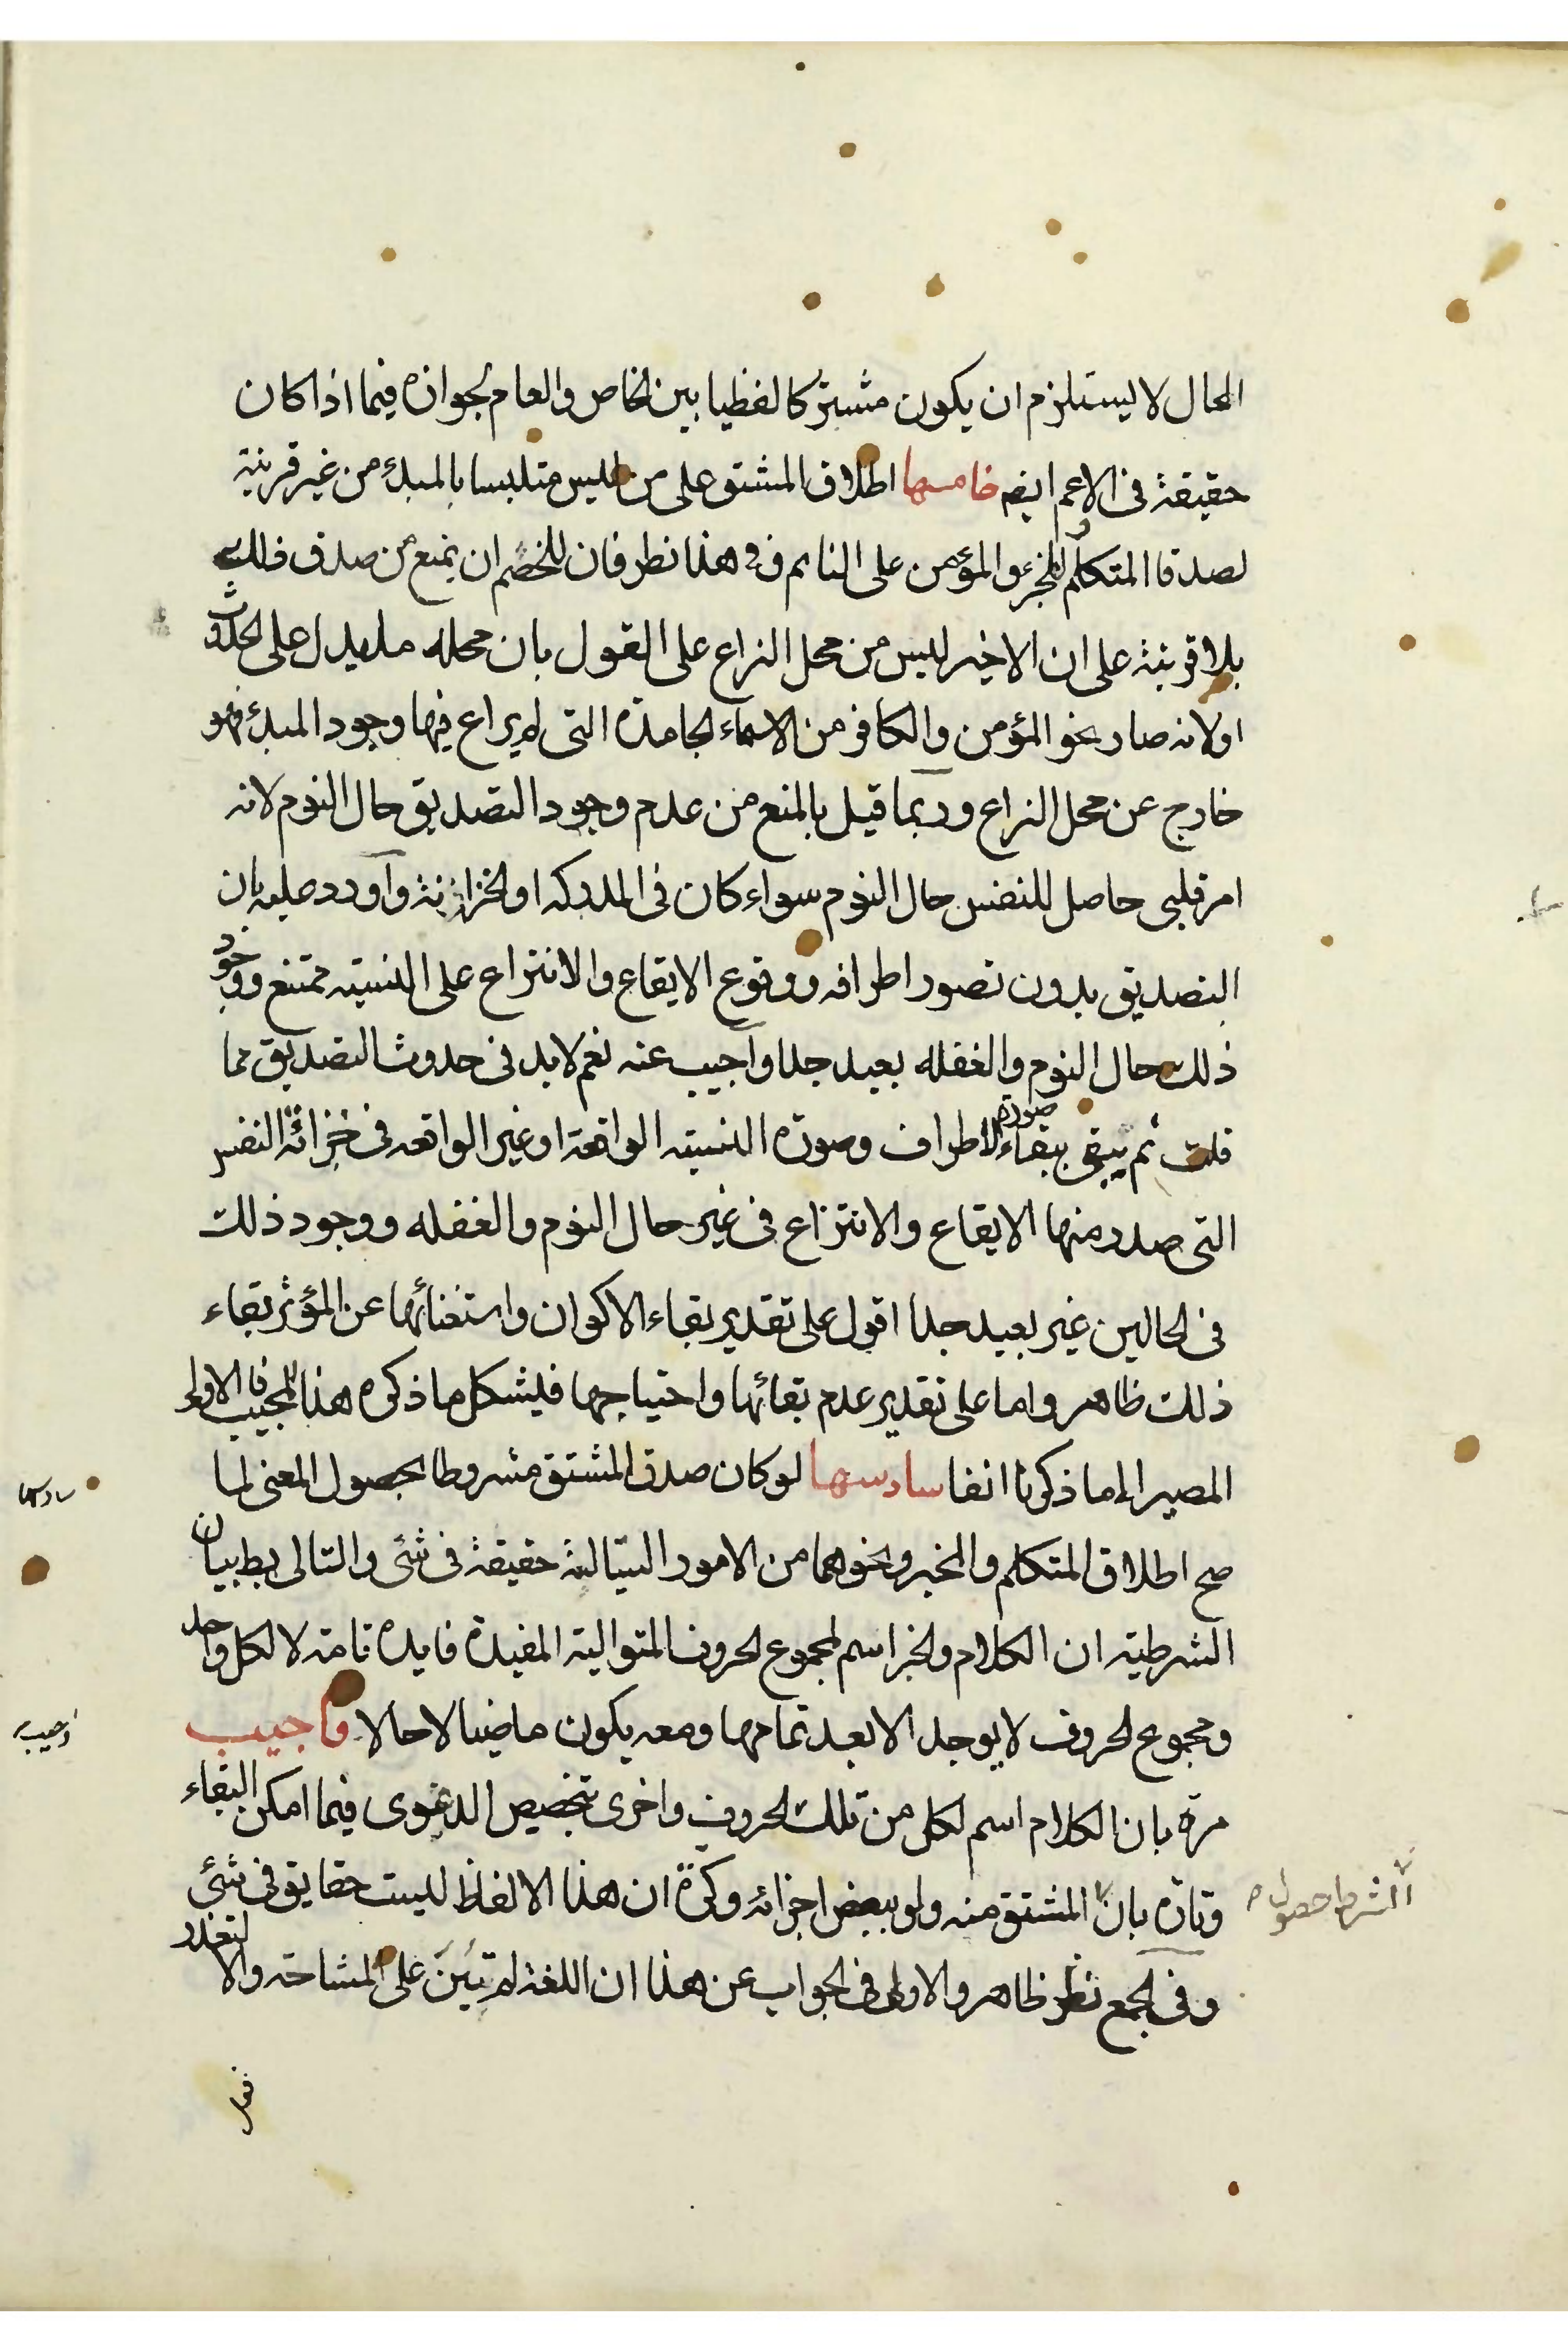 الحال لا يستلزم ان يكون مشتركا لفظيا بين الخاص والعام لجوازه فيما اذا كان
حقيقة فى الاعم ايضه خامسها اطلاق المشتق على من ليس متلبسا بالمبدء من غير قرينة
لصدق المتكلم والمخبر والمؤمن على النائم وفى هذا نظر فان للخصم ان يمنع من صدق ذلك
بلا قرينة على ان الاخير ليس من محل النزاع على القول بان محله ما يدل على الحدوث
او لانه صار نحو المؤمن والكافر من الاسماء الجامدة التى لم يراع فيها وجود المبدء فهو
خارج عن محل النزاع وربما قيل بالمنع من عدم وجود التصديق حال النوم لانه
امر قلبى حاصل للنفس حال النوم سواء كان فى المدركه او الخزانة واورد عليه بان
التصديق بدون تصور اطرافه ووقوع الايقاع والانتزاع على النسبته ممتنع ووجود
ذلك حال النوم والغفله بعيد جدا واجيب عنه نعم لا بد فى حدوث التصديق مما
قلت ثم يبقى ببقاء صورة الاطراف وصورة النسبته الواقعة او غير الواقعه فى خزانة النفس
التى صدر منها الايقاع والانتزاع فى غير حال النوم والغفله ووجود ذلك
فى الحالين غير بعيد جدا اقول على تقدير بقاء الاكوان واستغنائها عن المؤثر بقاء
ذلك ظاهر واما على تقدير عدم بقائها واحتياجها فيشكل ما ذكره هذا المجيب فا الاولى
المصير الى ما ذكرنا انفا سادسها لو كان صدق المشتق مشروطا بحصول المعنى لما
صح اطلاق المتكلم والمخبر ونحوهما من الامور السيالة حقيقة فى شئى والتالى بط بيان
الشرطيته ان الكلام والخبر اسم لمجموع الحروف المتوالية المفيدة فايدة تامة لا لكل واحد
ومجموع الحروف لا يوجد الا بعد تمامها ومعه يكون ماضيا لا حالا واجيب
مرة بان الكلام اسم لكل من تلك الحروف واخرى بتخصيص الدعوى فيما امكن البقاء
وتارة بان المشتق منه ولو ببعض اجزائه وكرة ان هذا الالفاظ ليست حقايق فى شئى
وفى الجمع نظر ظاهر والاولى فى الجواب عن هذا ان اللغة لم تبن على المشاحة والا لتعذر
سادسها
اجيب
الشرط حصول